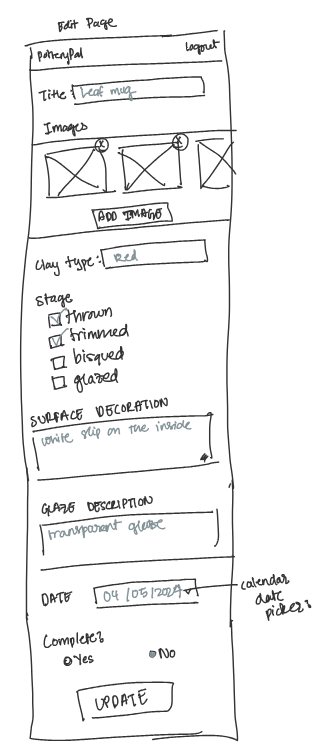 Edit Page
PotteryPal Logout
Title: Leaf mug
Images
X X
ADD IMAGE
Clay type: Red
Stage
thrown
trimmed
bisqued
glazed
SURFACE DECORATION
white slip on the inside
GLAZE DESCRIPTION
transparent glaze
DATE 04/05/2024
calendar
date
picker?
Complete?
Yes No
UPDATE